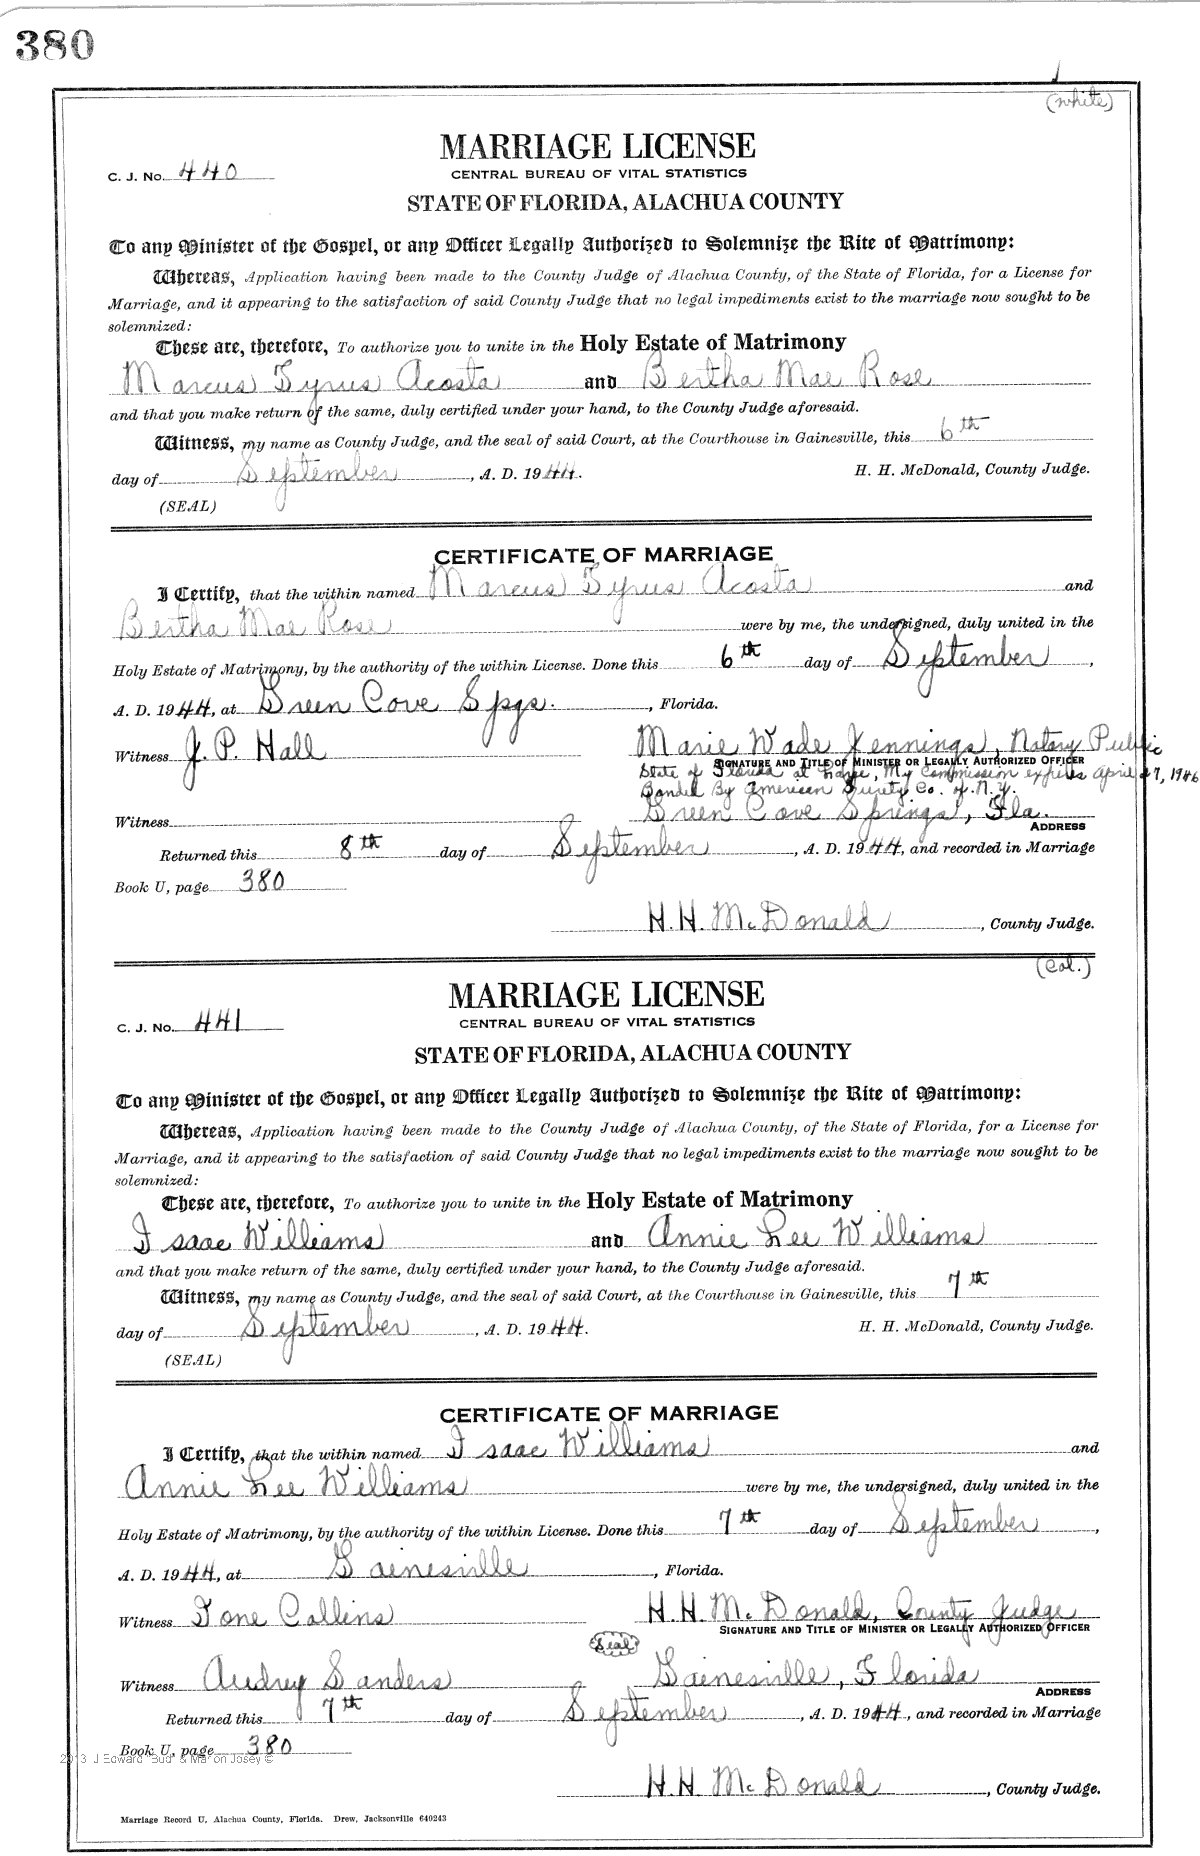 380
(white)
MARRIAGE LICENSE
C. J. No. 440
CENTRAL BUREAU OF VITAL STATISTICS
STATE OF FLORIDA, ALACHUA COUNTY
To any Minister of the Gospel, or any Officer Legally Authorized to Solemnize the Rite of Matrimony:
Whereas, Application having been made to the County Judge of Alachua County, of the State of Florida, for a License for
Marriage, and it appearing to the satisfaction of said County Judge that no legal impediments exist to the marriage now sought to be
solemnized:
These are, therefore, To authorize you to unite in the Holy Estate of Matrimony
Marcus Tyrus Acosta and Bertha Mae Rose
and that you make return of the same, duly certified under your hand, to the County Judge aforesaid.
Witness, my name as County Judge, and the seal of said Court, at the Courthouse in Gainesville, this 6th
day of September, A. D. 1944. H. H. McDonald, County Judge.
(SEAL)
CERTIFICATE OF MARRIAGE
I Certify, that the within named Marcus Tyrus Acosta and
Bertha Mae Rose were by me, the undersigned, duly united in the
Holy Estate of Matrimony, by the authority of the within License. Done this 6th day of September,
A. D. 1944, at Green Cove Spgs., Florida.
Witness J. P. Hall Marie Wade Jennings, Notary Public
SIGNATURE AND TITLE OF MINISTER OR LEGALLY AUTHORIZED OFFICER
State of Florida at Large, My Commission expires April 27, 1946
Bonded By American Surety Co. of N.Y.
Witness Green Cove Springs, Fla.
ADDRESS
Returned this 8th day of September, A. D. 1944, and recorded in Marriage
Book U, page 380
H. H. McDonald, County Judge.
(Col.)
MARRIAGE LICENSE
C. J. No. 441
CENTRAL BUREAU OF VITAL STATISTICS
STATE OF FLORIDA, ALACHUA COUNTY
To any Minister of the Gospel, or any Officer Legally Authorized to Solemnize the Rite of Matrimony:
Whereas, Application having been made to the County Judge of Alachua County, of the State of Florida, for a License for
Marriage, and it appearing to the satisfaction of said County Judge that no legal impediments exist to the marriage now sought to be
solemnized:
These are, therefore, To authorize you to unite in the Holy Estate of Matrimony
Isaac Williams and Annie Lee Williams
and that you make return of the same, duly certified under your hand, to the County Judge aforesaid.
Witness, my name as County Judge, and the seal of said Court, at the Courthouse in Gainesville, this 7th
day of September, A. D. 1944. H. H. McDonald, County Judge.
(SEAL)
CERTIFICATE OF MARRIAGE
I Certify, that the within named Isaac Williams and
Annie Lee Williams were by me, the undersigned, duly united in the
Holy Estate of Matrimony, by the authority of the within License. Done this 7th day of September,
A. D. 1944, at Gainesville, Florida.
Witness Ione Collins H. H. McDonald, County Judge
SIGNATURE AND TITLE OF MINISTER OR LEGALLY AUTHORIZED OFFICER
Seal
Witness Audrey Sanders Gainesville, Florida
ADDRESS
Returned this 7th day of September, A. D. 1944, and recorded in Marriage
Book U, page 380
2013 J Edward "Bud" & Marion Josey ©
H. H. McDonald, County Judge.
Marriage Record U, Alachua County, Florida. Drew, Jacksonville 640243